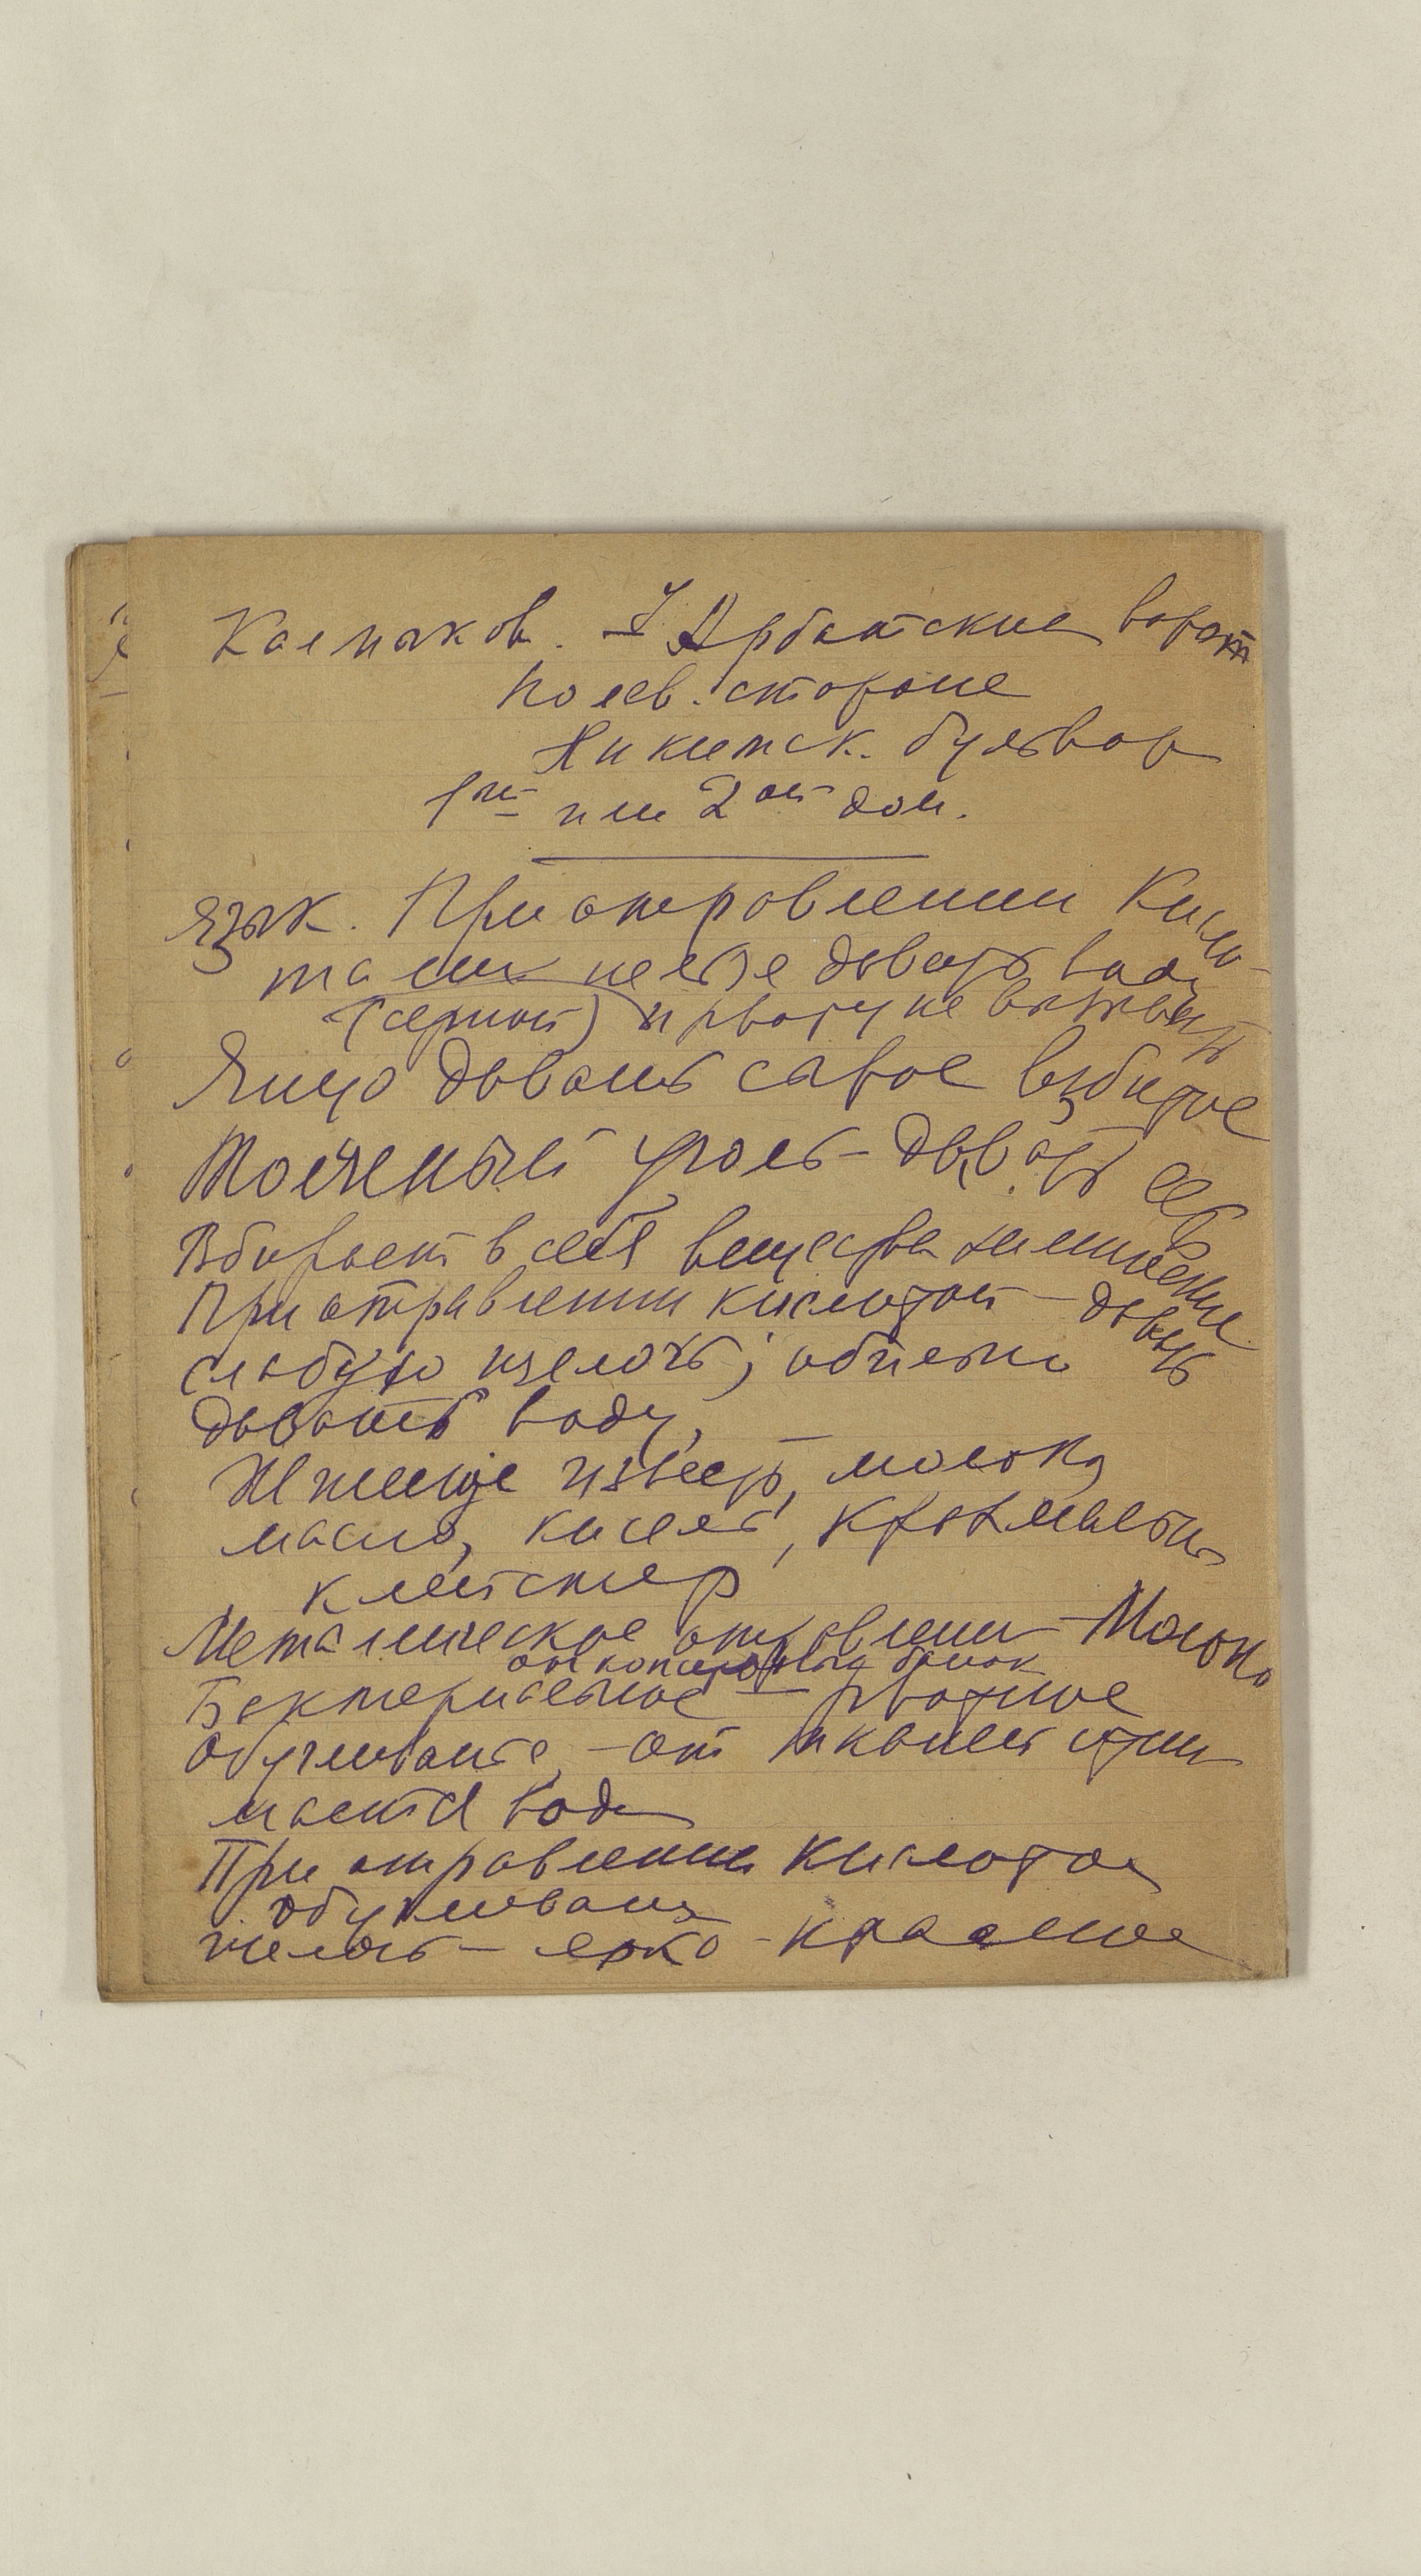 Колпаков. У Арбатские ворот
по лев. стороне
Никитск. бульвар
1ый или 2ой дом.
Язык. При отровлении Кисло-
тами нельзя довать воду
(серной) и рвоту не вызывать
Яйцо довать сырое взбитое
Толченый уголь – довать
Вбирает в себя вещества химические
При отравлении кислотой – довать
слабую щелочь; обильно
довать воду,
Жженые известь, молоко
масло, кисель, крахмальный
клейстер
Металическое отравлении – Молоко
от консервных банок
Бактериальное – рвотное
Обугливание, – от тканей отни
мается вода
При отравлении Кислотой
обугливание
щелочь – ярко – красное